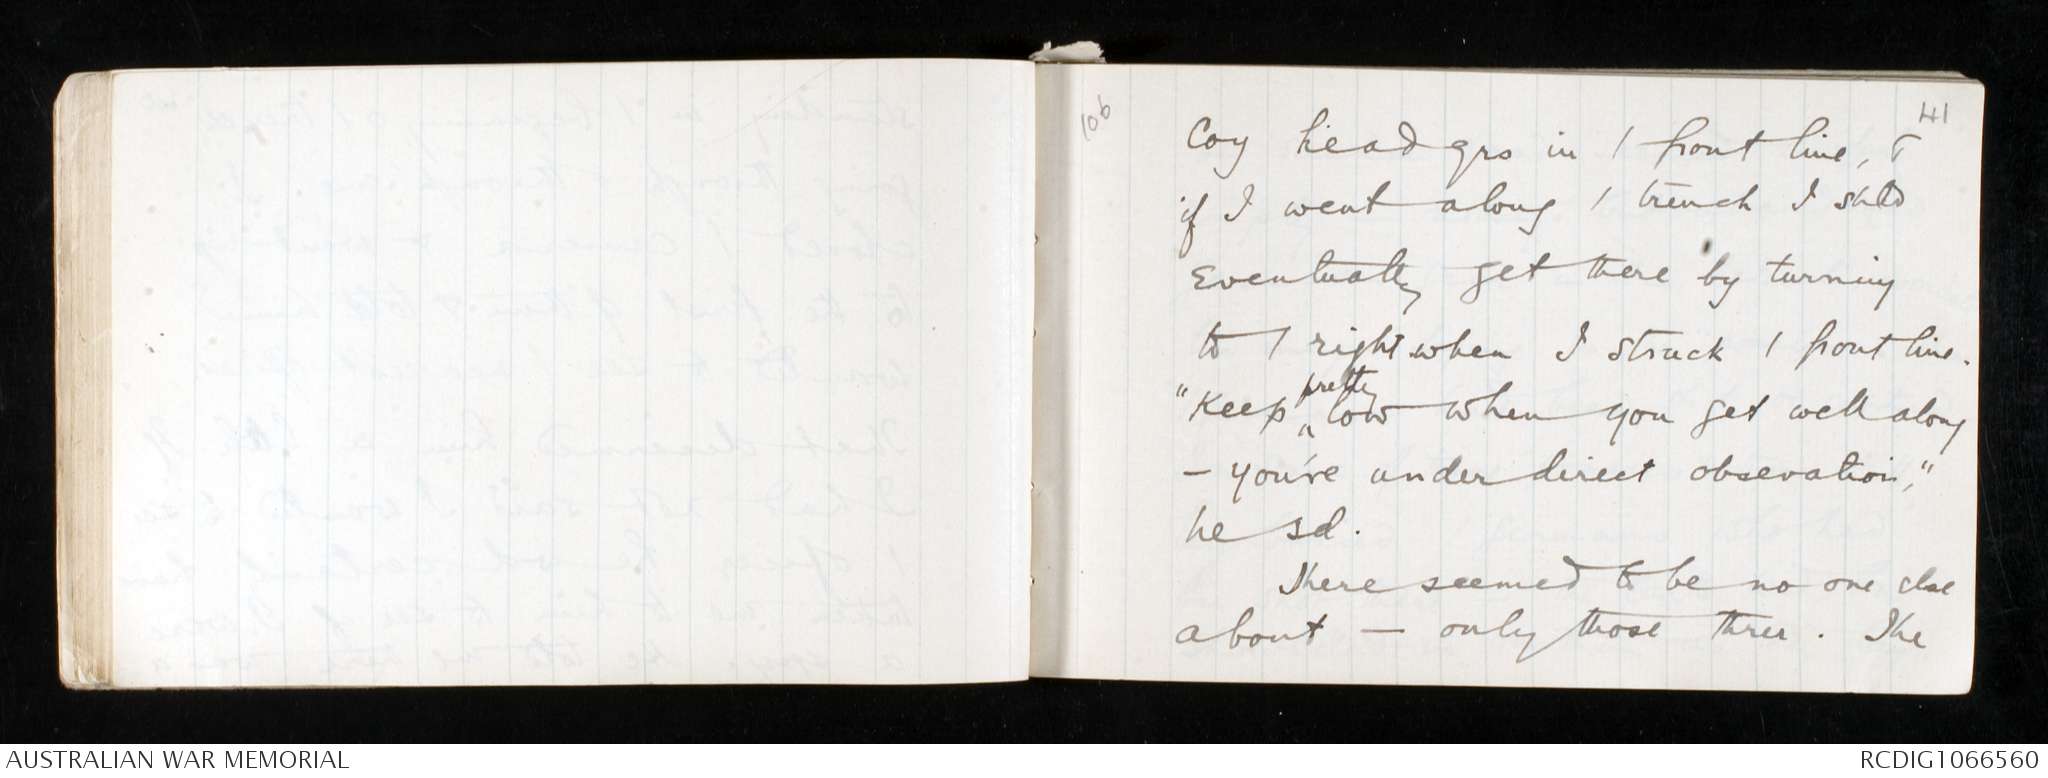 106
41
Coy head qrs in / front line, T
if I went along / trench I shld
eventually get there by turning
to / right when I struck / front line.
"Keep pretty low when you get well along
– you're under direct obsevation,"
he sd.
There seemed to be no one else
about – only those three. The
AUSTRALIAN WAR MEMORIAL
RCDIG1066560